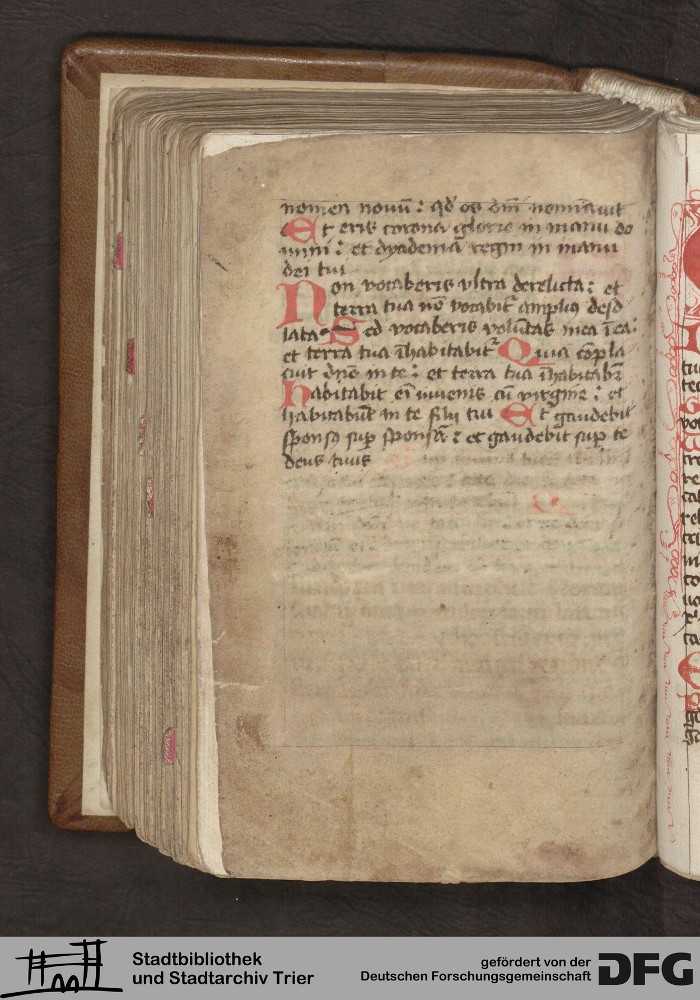 nomen nouū : qd̄ os dm̄ nominauit
Et eris corona glorie in manu do
mini : et dyadema regni in manu
dei tui
Non vocaberis vltra derelicta : et
terra tua nō vocabit᷑ amplius deso
lata Sed vocaberis volūtas mea ī ea :
et terra tua īhabitabit᷑ Quia cōpla
cuit dn̄o in te : et terra tua īhabitabit᷑
habitabit em̄ iuuenis cū virgine : et
habitabūt in te filij tui Et gaudebit
sponsus sup̄ sponsā : et gaudebit sup̄ te
deus tuus
Stadtbibliothek
und Stadtarchiv Trier
gefördert von der
Deutschen Forschungsgemeinschaft
DFG